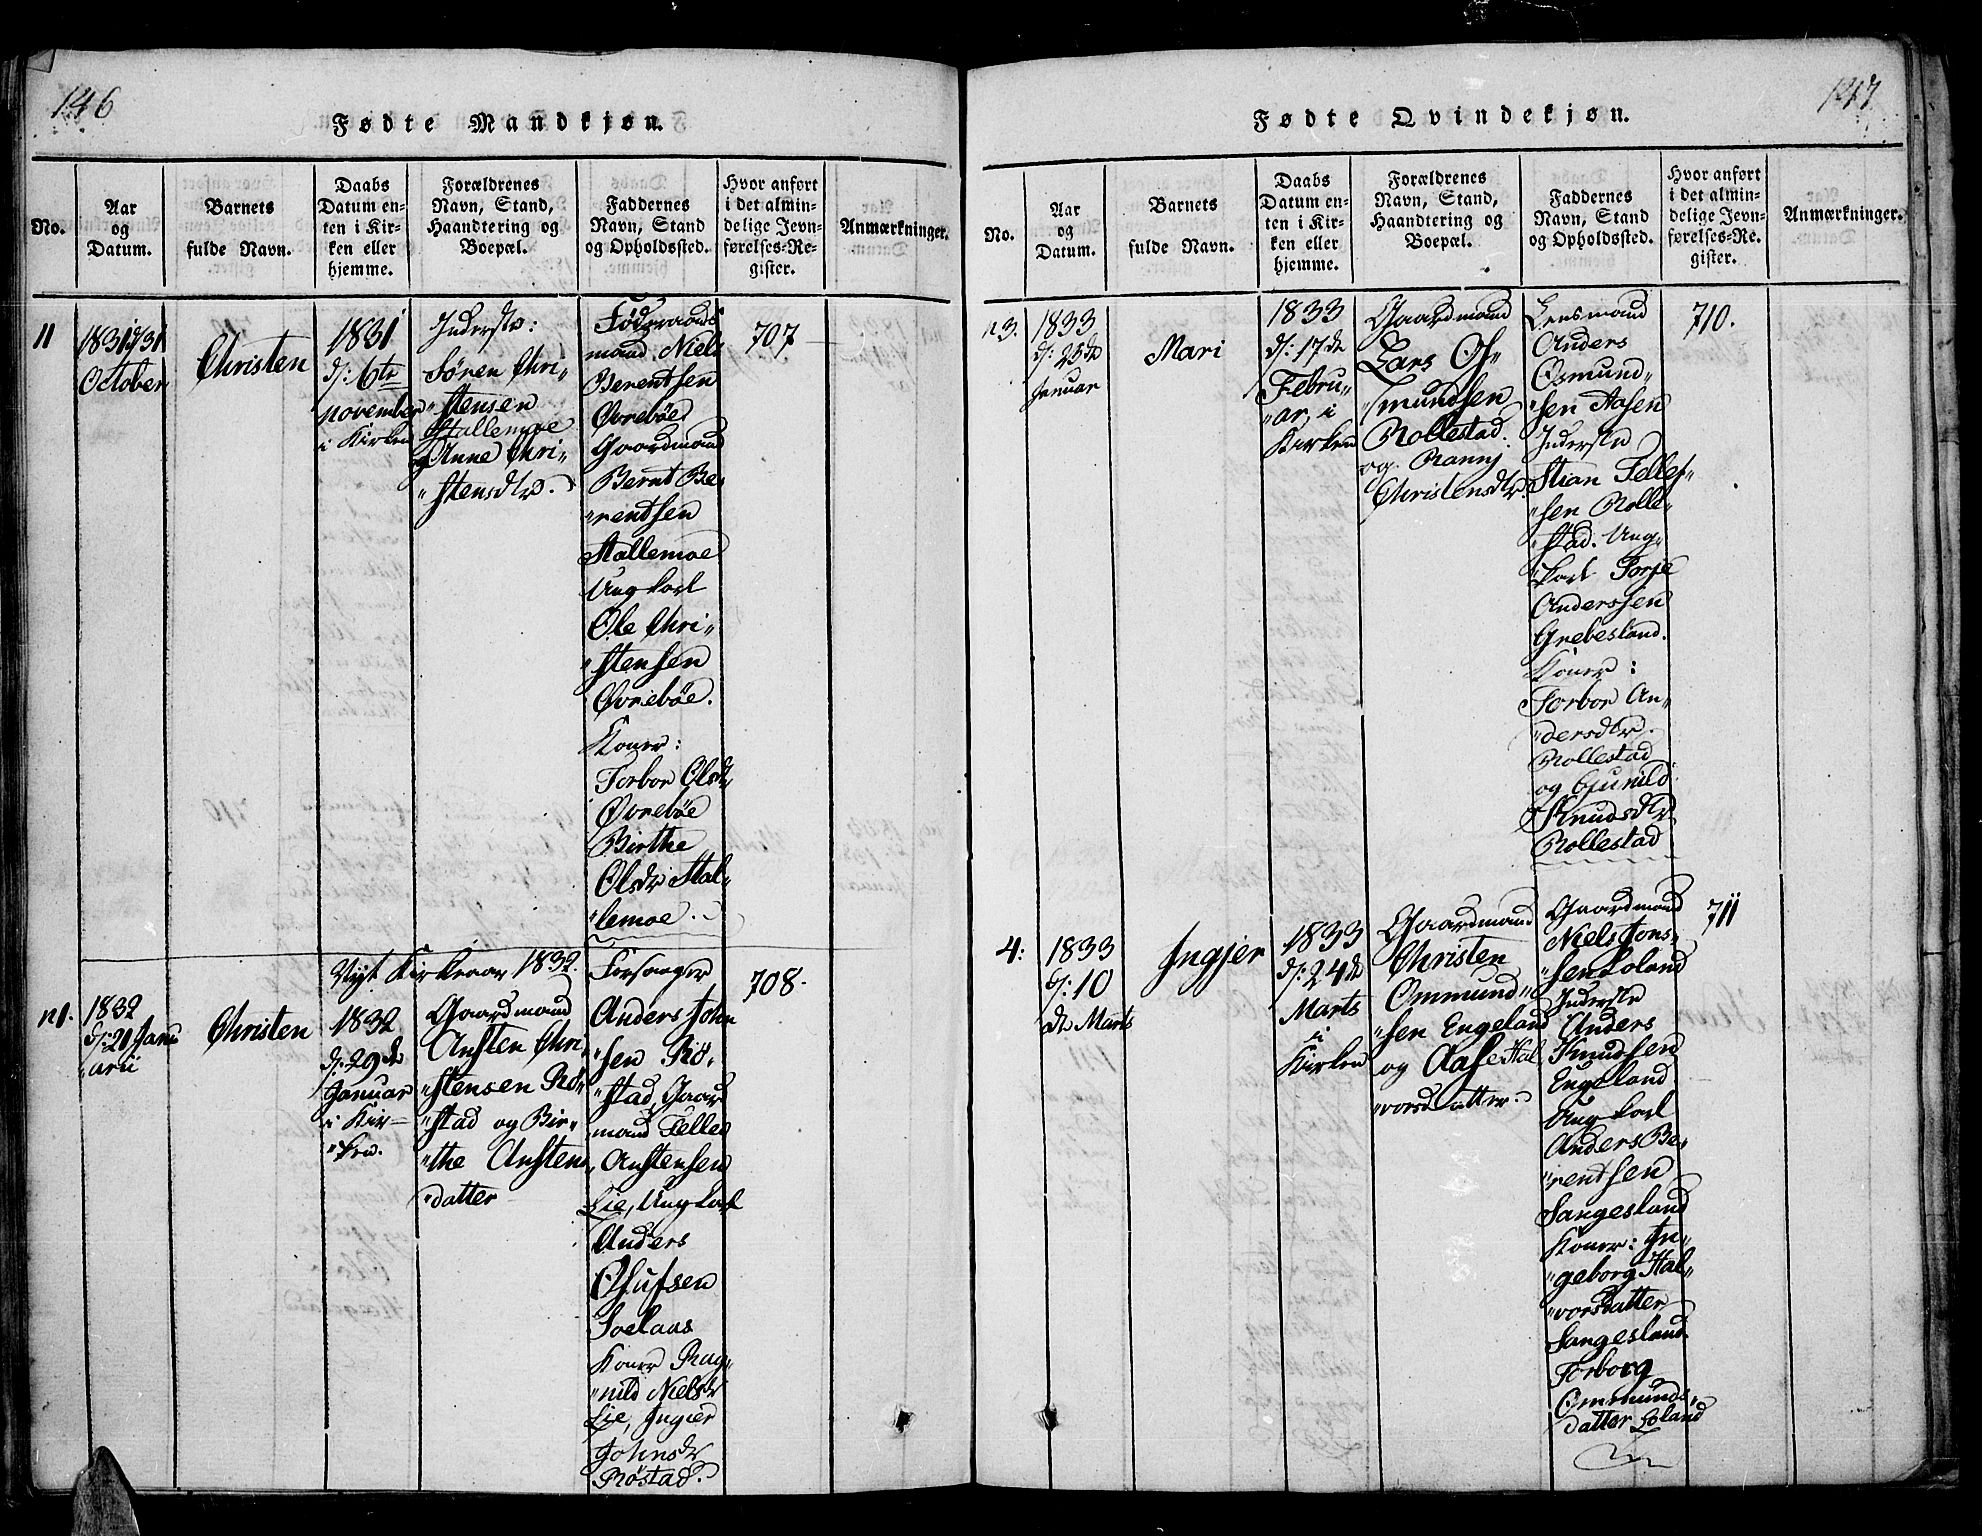 146
Fødte Mandkjøn.
No.
Aar
og
Datum.
Barnets
fulde Navn.
Daabs
Datum en-
ten i Kir-
ken eller
hjemme.
Forældrenes
Navn, Stand,
Haandtering og
Boepæl.
Faddernes
Navn, Stand
og Opholdssted.
Hvor anført
i det almin-
delige Jevn-
førelses-Re-
gister.
Anmærkninger.
11
1831 d/31
October
Christen
1831
d/: 6te
November
i Kirken
Inderste:
Søren Chri„
„stensen
Stallemoe
og Anne Chri„
„stensdtr.
Föderaads
mand Niels
Berentsen
Øvrebøe
Gaardmand
Bernt Be„
„rentsen
Stallemoe
Ungkarl
Ole Chri„
„stensen
Øvrebøe.
Koner:
Torbor Olsdr
Øvrebøe
Birthe
Olsdr Stal„
„lemoe.
707
Nyt Kirkeaar 1832.
n1.
1832
d/: 21 Janu
„arii
Christen
1832
d/: 29de
Januar
i Kir„
„ken.
Gaardmand
Ansten Chri„
„stensen Rö„
„stad og Bir„
„the Anstens
„datter
Forsanger
Anders John
„sen Rö„
„stad, Gaard
mand Tellef
Anstensen
Lie, Ungkarl
Anders
Olufsen
Soelaas
Koner Rag„
„nild Nielsdr
Lie, Ingier
Johnsdr
Röstad.
708.
147
Fødte Qvindekjøn.
No.
Aar
og
Datum.
Barnets
fulde Navn.
Daabs
Datum en-
ten i Kir-
ken eller
hjemme.
Forældrenes
Navn, Stand,
Haandtering og
Boepæl.
Faddernes
Navn, Stand
og Opholdssted.
Hvor anført
i det almin-
delige Jevn-
førelses-Re-
gister.
Anmærkninger.
n3.
1833
d/: 25de
Januar
Mari
1833
d/: 17de
Febru„
„ar, i
Kirken
Gaardmand
Lars Os„
„mundsen
Rollestad.
og Rannj
Christensdtr
Lensmand
Anders
Osmund„
„sen Aasen
Inderste
Stian Tellef„
„sen Rolle„
„stad. Ung„
„karl Torje
Anderssen
Grebesland.
Koner:
Torbor An„
„dersdtr.
Rollestad
og Gunild
Knudsdtr
Rollestad
710.
4:
1833
d/: 10
de Marts
Ingjer
1833
d/: 24de
Marts
i
Kirken
Gaardmand
Christen
Ommund„
„sen Engeland
og Aase Hal
„vorsdatter.
Gaardmand
Niels Jons„
„sen Loland
Inderste
Anders
Knudsen
Engeland
Ungkarl
Anders Be„
„rentsen
Sangesland
Koner: In„
„geborg Hal„
„vorsdatter
Sangesland
Torborg
Ommunds„
datter Loland
711